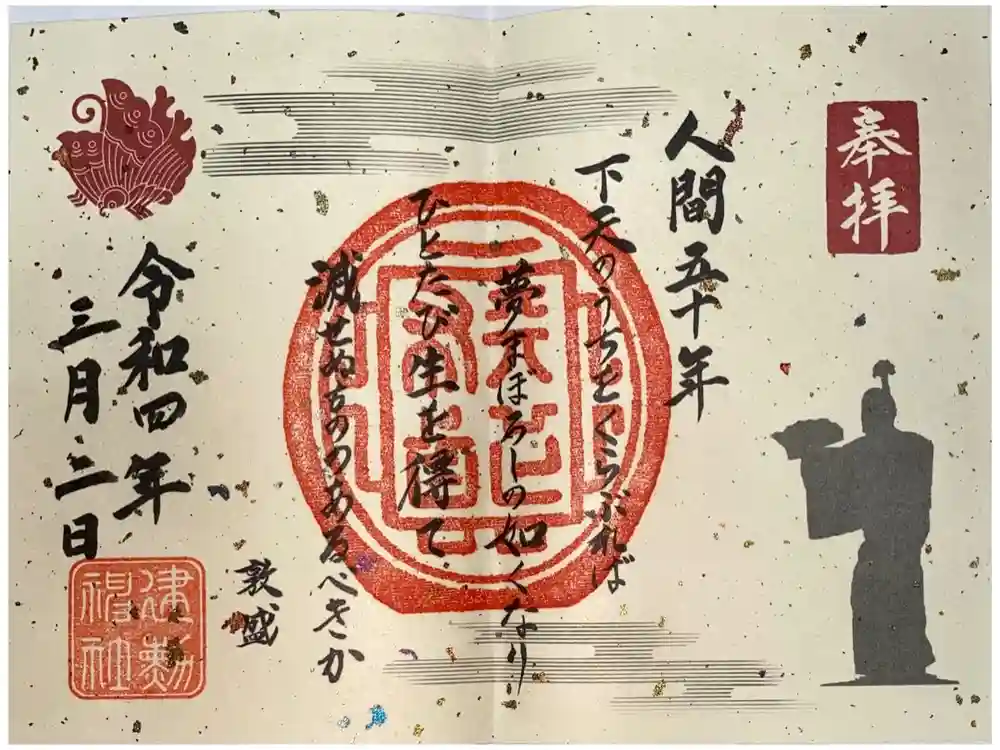 奉拝
人間五十年
下天のうちをくらぶれば
夢まぼろしの如くなり
ひとたび生を得て
滅せぬもののあるべきか
敦盛
令和四年
三月二日
建勲神社
天下布武